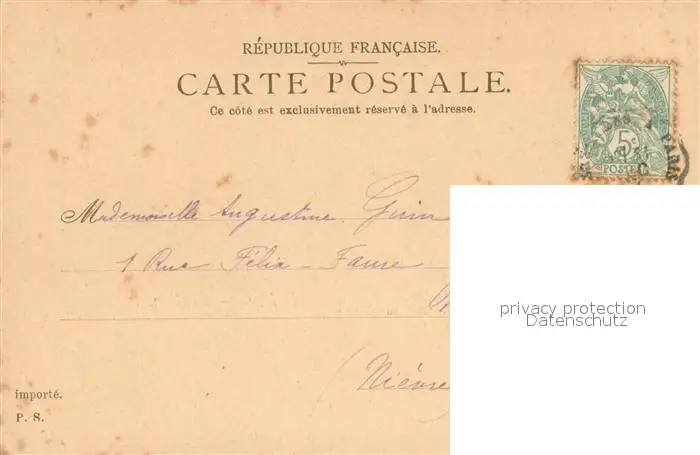 RÉPUBLIQUE FRANÇAISE.
CARTE POSTALE.
Ce côté est exclusivement réservé à l'adresse.
5c
POSTES
PARIS
Mademoiselle Augustine Guin
1 Rue Félix-Faure
(Nièvre
privacy protection
Datenschutz
importé.
P. S.